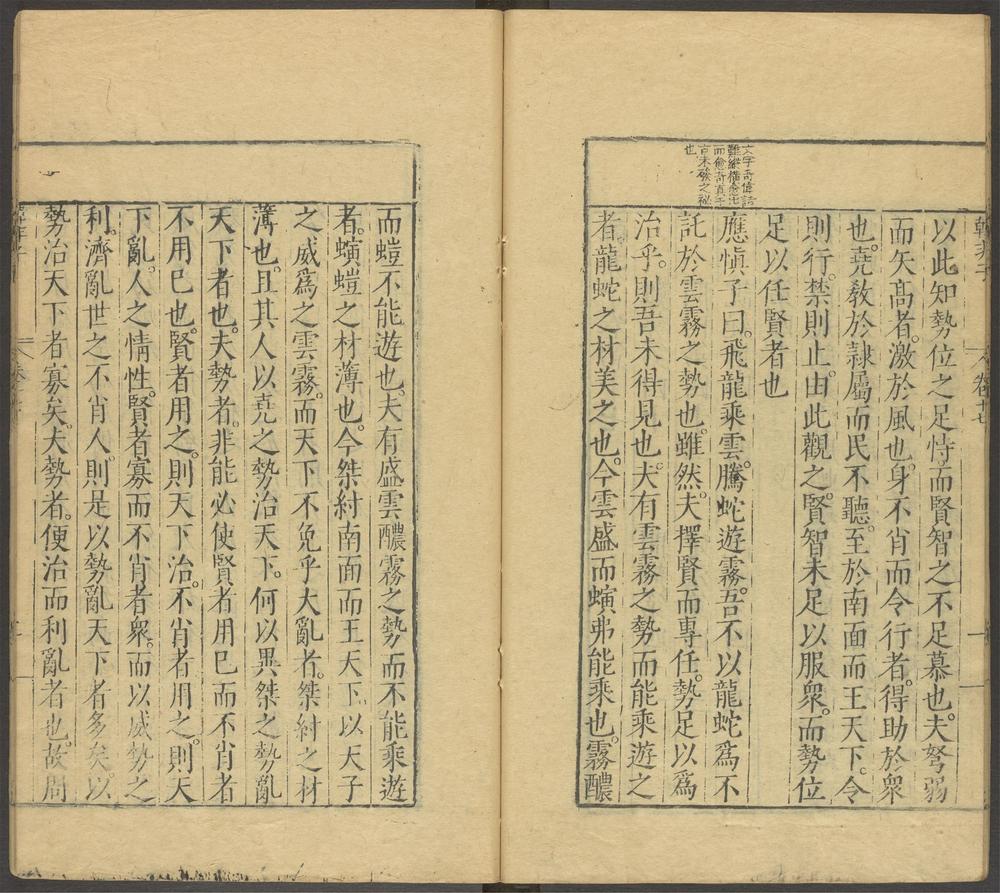 韓非子 卷十七
以此知勢位之足恃而賢智之不足慕也。夫弩弱
而矢高者。激於風也。身不肖而令行者。得助於衆
也。堯教於隷屬而民不聽。至於南面而王天下。令
則行。禁則止。由此觀之。賢智未足以服衆。而勢位
足以任賢者也
文字奇偉詰
而愈奇真千
古未發之祕
也
應慎子曰。飛龍乘雲。騰蛇遊霧。吾不以龍蛇爲不
託於雲霧之勢也。雖然。夫擇賢而專任。勢足以爲
治乎。則吾未得見也。夫有雲霧之勢而能乘遊之
者。龍蛇之材美之也。今雲盛而螾弗能乘也。霧醲
而螘不能遊也。夫有盛雲醲霧之勢而不能乘遊
者。螾螘之材薄也。今桀紂南面而王天下。以天子
之威爲之雲霧。而天下不免乎大亂者。桀紂之材
薄也。且其人以堯之勢治天下。何以異桀之勢亂
天下者也。夫勢者。非能必使賢者用已而不肖者
不用已也。賢者用之。則天下治。不肖者用之。則天
下亂。人之情性。賢者寡而不肖者衆。而以威勢之
利。濟亂世之不肖人。則是以勢亂天下者多矣。以
勢治天下者寡矣。夫勢者。便治而利亂者也。故周